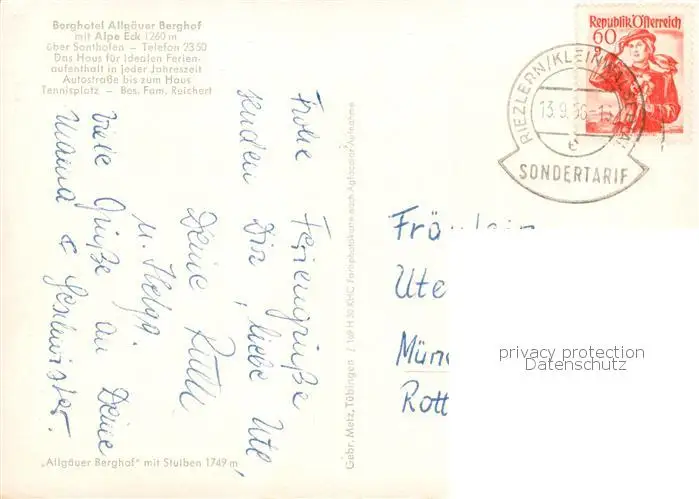 Berghotel Allgäuer Berghof
mit Alpe Eck 1260 m
über Sonthofen – Telefon 2350
Das Haus für idealen Ferien-
aufenthalt in jeder Jahreszeit
Autostraße bis zum Haus
Tennisplatz – Bes. Fam. Reichert
Frohe Feriengrüße
senden Dir, liebe Ute,
Deine Ruth
u. Helga
Viele Grüße an Deine
Mama & Geschwister.
„Allgäuer Berghof" mit Stuiben 1749 m
Gebr. Metz, Tübingen
Farbphotokarte nach Agfacolor-Aufnahme
Republik Österreich
60
RIEZLERN/KLEINWALSERTAL
13.9.56
e
SONDERTARIF
Fräulein
Ute
Mün
Rott
privacy protection
Datenschutz